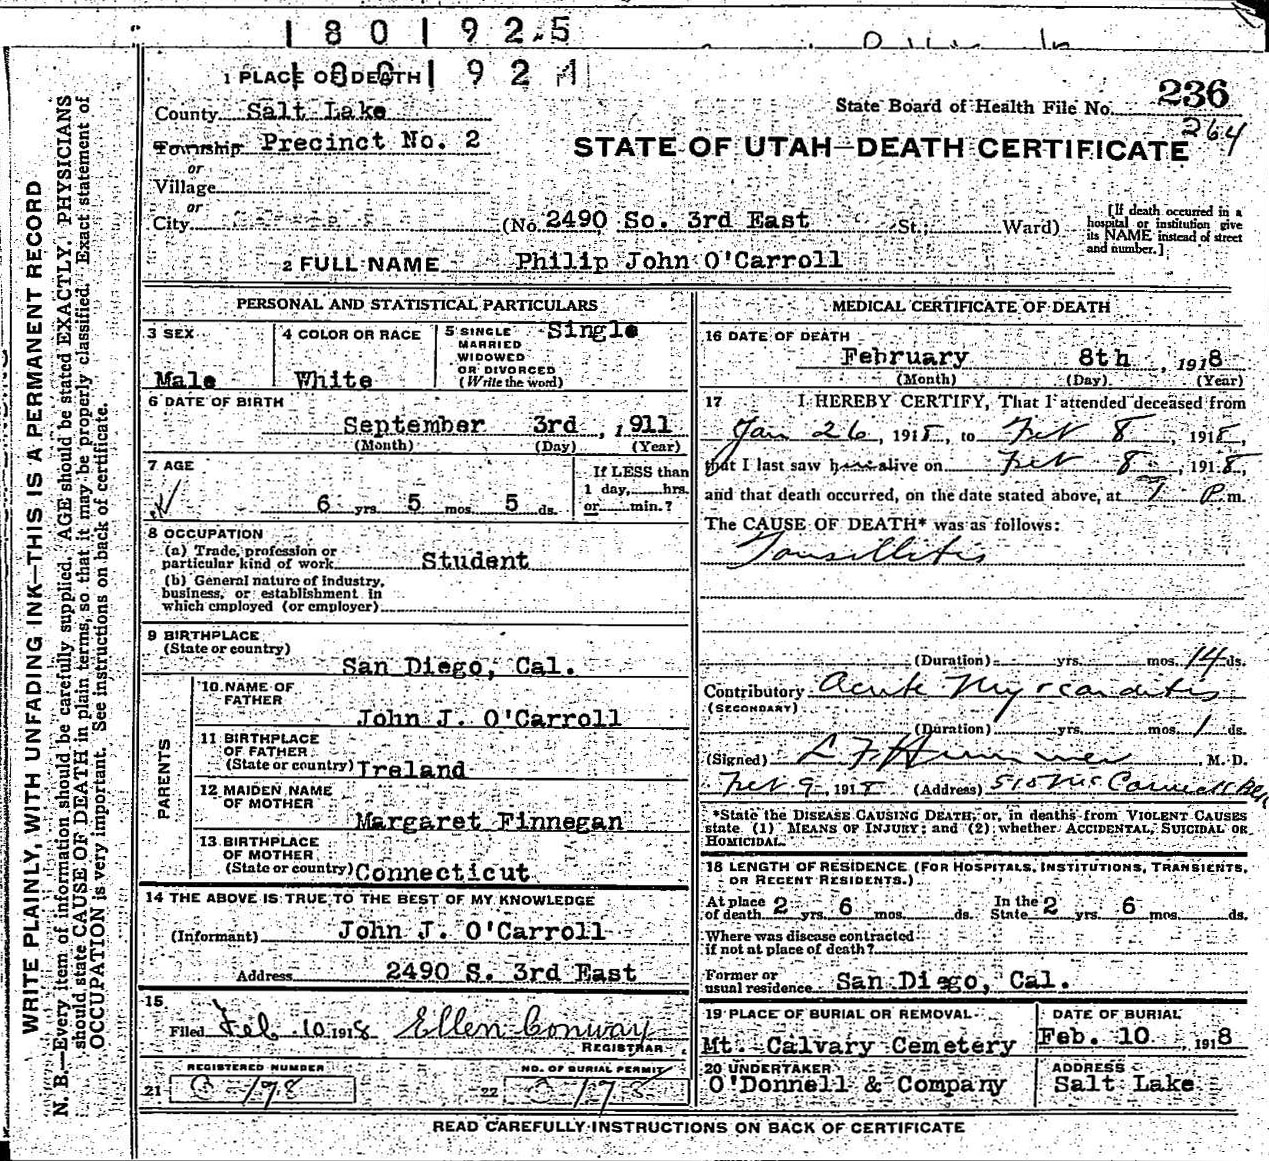 1801925
1801924
1 PLACE OF DEATH
County Salt Lake
State Board of Health File No. 236
264
Township Precinct No. 2
STATE OF UTAH—DEATH CERTIFICATE
or
Village
or
City
(No. 2490 So. 3rd East St.; Ward)
[If death occurred in a hospital or institution give its NAME instead of street and number.]
2 FULL NAME Philip John O'Carroll
PERSONAL AND STATISTICAL PARTICULARS
3 SEX
Male
4 COLOR OR RACE
White
5 SINGLE
MARRIED
WIDOWED
OR DIVORCED
(Write the word)
Single
6 DATE OF BIRTH
September 3rd, 1911
(Month) (Day) (Year)
7 AGE
6 yrs. 5 mos. 5 ds.
If LESS than
1 day, hrs.
or min.?
8 OCCUPATION
(a) Trade, profession or
particular kind of work Student
(b) General nature of industry,
business, or establishment in
which employed (or employer)
9 BIRTHPLACE
(State or country)
San Diego, Cal.
PARENTS
10 NAME OF
FATHER
John J. O'Carroll
11 BIRTHPLACE
OF FATHER
(State or country) Ireland
12 MAIDEN NAME
OF MOTHER
Margaret Finnegan
13 BIRTHPLACE
OF MOTHER
(State or country) Connecticut
14 THE ABOVE IS TRUE TO THE BEST OF MY KNOWLEDGE
(Informant) John J. O'Carroll
Address 2490 S. 3rd East
15
Filed Feb 10 1918 Ellen Conway
REGISTRAR
REGISTERED NUMBER
21
NO. OF BURIAL PERMIT
22
MEDICAL CERTIFICATE OF DEATH
16 DATE OF DEATH
February 8th, 1918
(Month) (Day) (Year)
17 I HEREBY CERTIFY, That I attended deceased from
Jan 26, 1918, to Feb 8, 1918,
that I last saw him alive on Feb 8, 1918,
and that death occurred, on the date stated above, at 7 P.m.
The CAUSE OF DEATH* was as follows:
Tonsillitis
(Duration) yrs. mos. 14 ds.
Contributory Acute Myocarditis
(SECONDARY)
(Duration) yrs. mos. 1 ds.
(Signed) M. D.
Feb 9, 1918 (Address) 510 McCornick Bldg
*State the DISEASE CAUSING DEATH, or, in deaths from VIOLENT CAUSES
state (1) MEANS OF INJURY; and (2) whether ACCIDENTAL, SUICIDAL OR
HOMICIDAL.
18 LENGTH OF RESIDENCE (FOR HOSPITALS, INSTITUTIONS, TRANSIENTS,
OR RECENT RESIDENTS.)
At place
of death 2 yrs. 6 mos. ds.
In the
State 2 yrs. 6 mos. ds.
Where was disease contracted
if not at place of death?
Former or
usual residence San Diego, Cal.
19 PLACE OF BURIAL OR REMOVAL
Mt. Calvary Cemetery
DATE OF BURIAL
Feb. 10, 1918
20 UNDERTAKER
O'Donnell & Company
ADDRESS
Salt Lake
READ CAREFULLY INSTRUCTIONS ON BACK OF CERTIFICATE
WRITE PLAINLY, WITH UNFADING INK—THIS IS A PERMANENT RECORD
N. B.—Every item of information should be carefully supplied. AGE should be stated EXACTLY. PHYSICIANS
should state CAUSE OF DEATH in plain terms, so that it may be properly classified. Exact statement of
OCCUPATION is very important. See instructions on back of certificate.